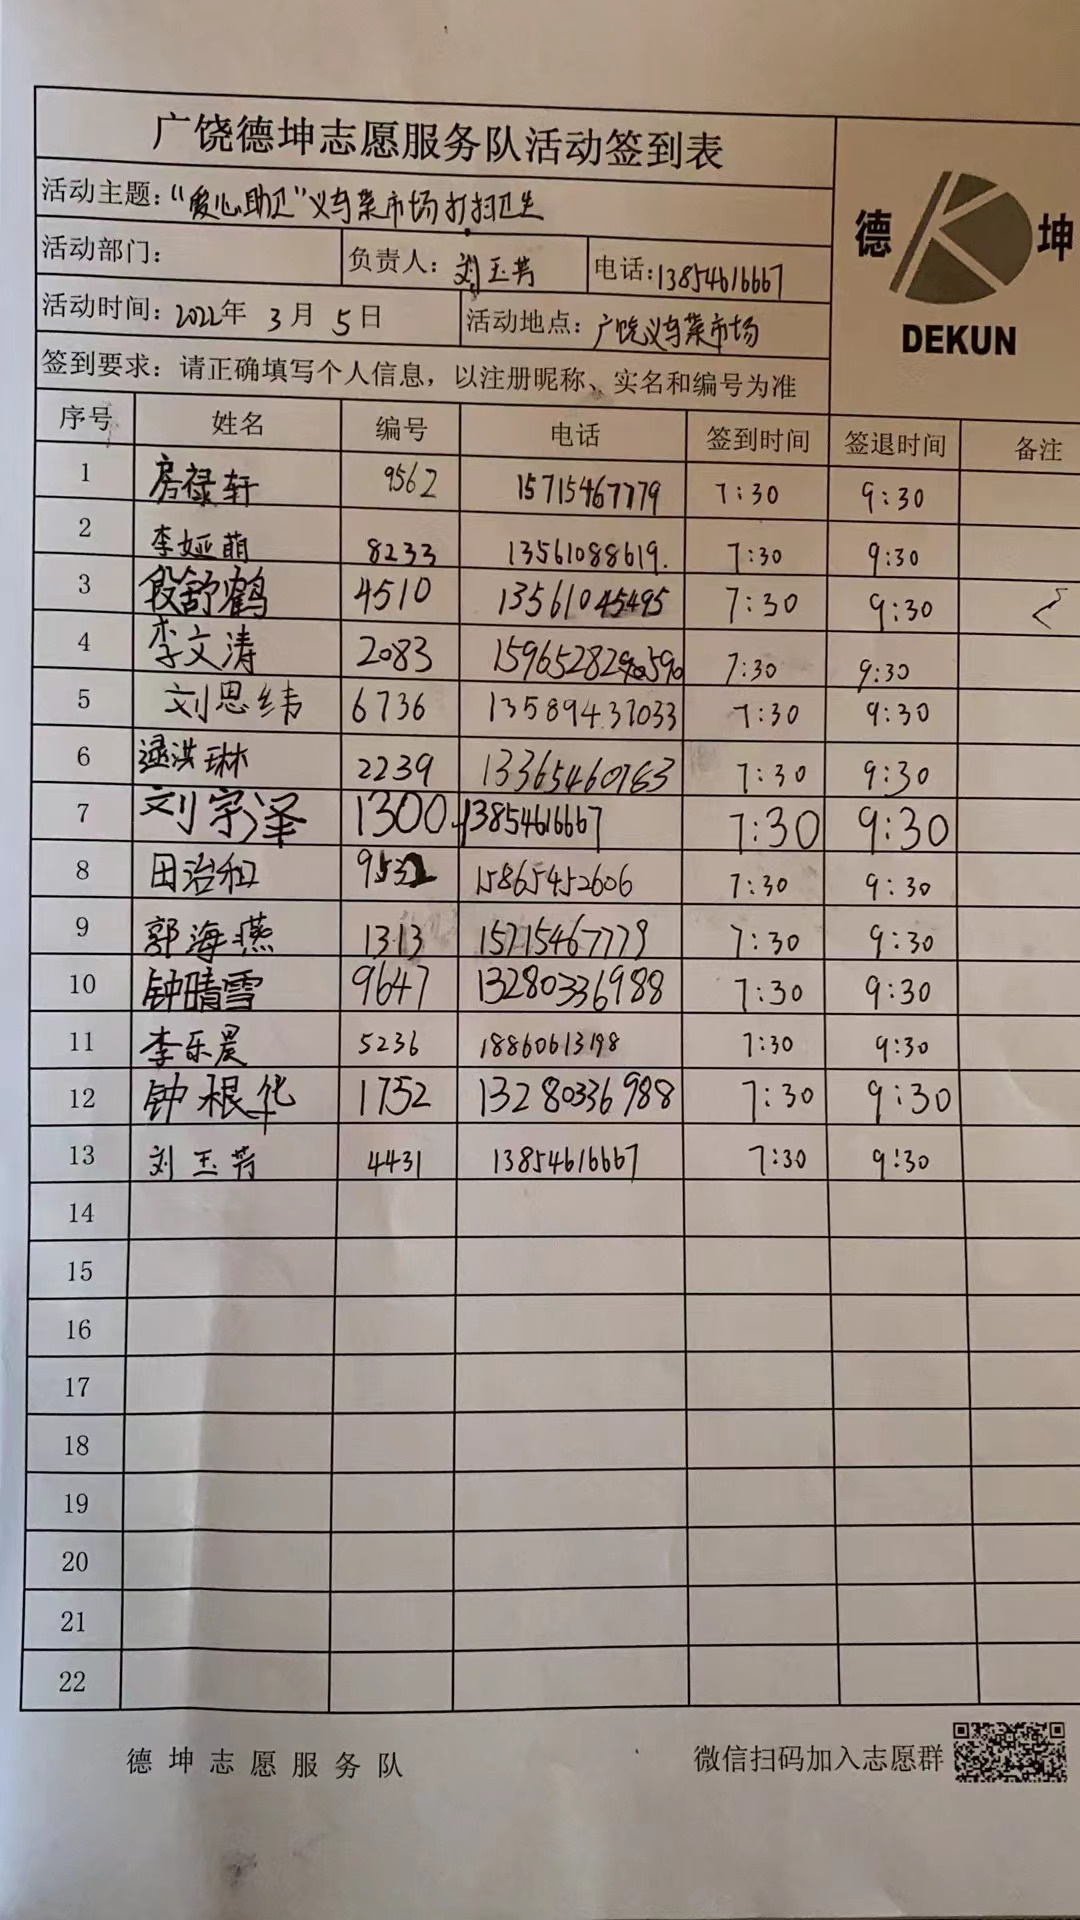 广饶德坤志愿服务队活动签到表
德 坤
DEKUN
活动主题：“爱心助卫”义乌菜市场打扫卫生
活动部门： 负责人：刘玉芳 电话：13854616667
活动时间：2022年 3月 5日 活动地点：广饶义乌菜市场
签到要求：请正确填写个人信息，以注册昵称、实名和编号为准
序号 姓名 编号 电话 签到时间 签退时间 备注
1 房禄轩 9562 15715467779 7:30 9:30
2 李娅萌 8233 13561088619. 7:30 9:30
3 段舒鹤 4510 13561045495 7:30 9:30
4 李文涛 2083 7:30 9:30
5 刘恩纬 6736 13589437033 7:30 9:30
6 逯洪琳 2239 13365460783 7:30 9:30
7 刘宇泽 1300 13854616667 7:30 9:30
8 田治和 15865452606 7:30 9:30
9 郭海燕 1313 15715467779 7:30 9:30
10 钟晴雪 9647 13280336988 7:30 9:30
11 李乐晨 5236 18860613198 7:30 9:30
12 钟根华 1752 13280336988 7:30 9:30
13 刘玉芳 4431 13854616667 7:30 9:30
14
15
16
17
18
19
20
21
22
德坤志愿服务队 微信扫码加入志愿群